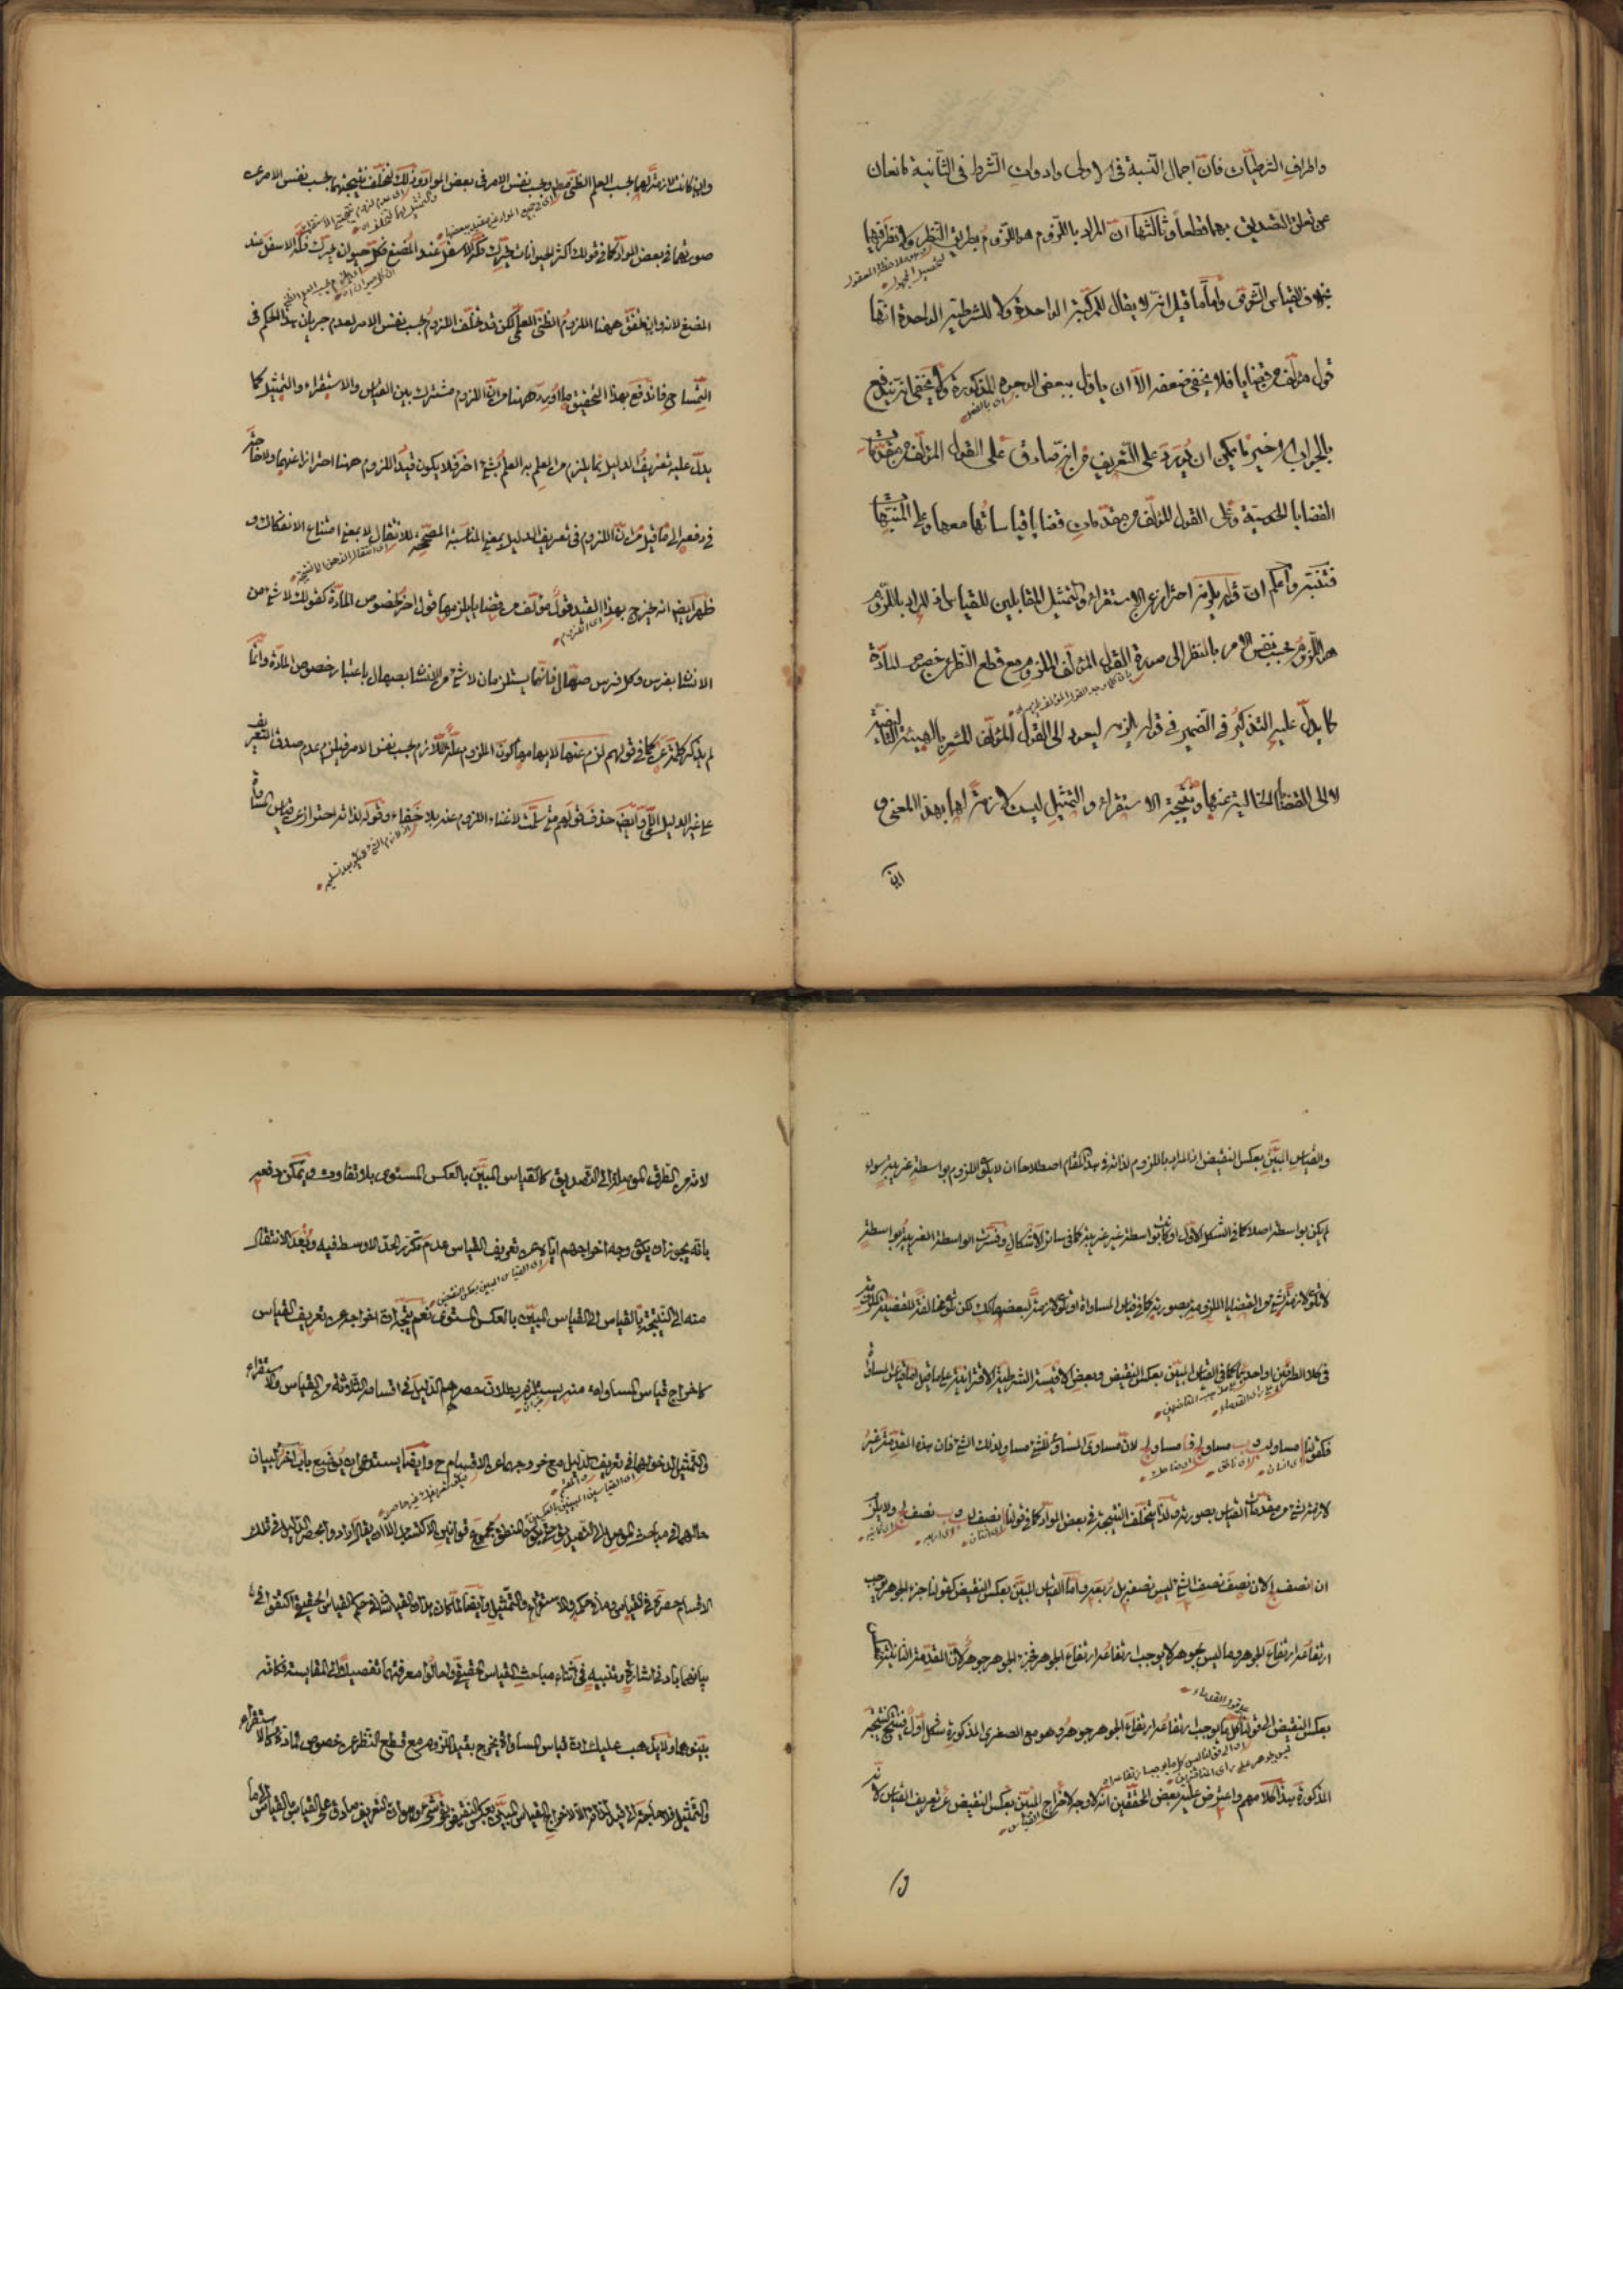 واطراف الشرطيات فان اجمال النسبة في الاولى وادوات الشرط في الثانية مانعان
عن تعلق التصديق بهما قطعا وثالثها ان المراد باللزوم هو اللزوم بطريق النظر ولا نظر فيهما
بخلاف القياس الشرعي واما ما قيل انه لا يقال للمركبة الواحدة ولا للشرطية الواحدة انها
قول مؤلف من قضايا فلا يخفى ضعفه الا ان ياول ببعض الوجوه المذكورة ولا يخفى انه يندفع
بالجواب الاخير ما يمكن ان يورد على التعريف من انه صادق على القول المؤلف من مقدمات
القضايا الحدسية وعلى القول المؤلف من مقدمات قضايا قياساتها معها وعلى
فتنبه واعلم ان قوله يلزمه احتراز عن الاستقراء والتمثيل المقابلين للقياس اذ المراد باللزوم
هو اللزوم بحسب نفس الامر بالنظر الى صورة القول المؤلف الملزوم مع قطع النظر عن خصوص المادة
كما يدل عليه التذكير في الضمير في قوله يلزمه ليعود الى القول المؤلف المشعر بالهيئة التأليفية
لا الى القضايا الخالية عنها ونتيجة الاستقراء والتمثيل ليست لازمة لهما بهذا المعنى و
ان
وان كانت لازمة لهما بحسب العلم الظني مطلقا وبحسب نفس الامر في بعض المواد وذلك لتخلف نتيجتهما بحسب نفس الامر عن
صورتهما في بعض المواد كما في قولك اكثر الحيوانات يتحرك فكه الاسفل عند المضغ فكل حيوان يتحرك فكه الاسفل عند
المضغ لانه وان تحقق ههنا اللزوم الظني العلمي لكن قد تخلف اللزوم بحسب نفس الامر لعدم جريان هذا الحكم في
التمساح فاندفع بهذا التحقيق ما اورد ههنا من ان اللزوم مشترك بين القياس والاستقراء والتمثيل كما
يدل عليه تعريف الدليل بما يلزم من العلم به العلم بشيء اخر فلا يكون قيد اللزوم ههنا احترازا عنهما ولا حاجة
في دفعه الى ما قيل من ان اللزوم في تعريف الدليل بمعنى المناسبة المصححة للانتقال لا بمعنى امتناع الانفكاك و
ظهر ايضا انه يخرج بهذا القيد قول مؤلف من قضايا يلزمها قول اخر لخصوص المادة كقولك لا شيء من
الانسان بفرس وكل فرس صهال فانهما يستلزمان لا شيء من الانسان بصهال باعتبار خصوص المادة وانما
لم يذكر كلمة عن كما في قولهم لزم عنها لايهامها كون الملزوم علة للازم بحسب نفس الامر فيلزم عدم صدق التعريف
على غير الدليل اللمي وايضا حذف قولهم متى سلمت لاغناء اللزوم عنه بلا خفاء وقوله لذاته احتراز عن قياس المساواة
والقياس المبين بعكس النقيض اذ المراد باللزوم لذاته في هذا المقام اصطلاحا ان لا يكون اللزوم بواسطة غريبة سواء
لم يكن بواسطة اصلا كما في الشكل الاول او كانت بواسطة غير غريبة كما في سائر الاشكال وفسرت الواسطة الغريبة بواسطة
لا تكون لازمة لشيء من القضايا الملزومة بصورته كما في قياس المساواة او تكون لازمة لبعضها كذلك لكن تكون مخالفة للقضية الملزومة
في كلا الطرفين او احدهما كما في القياس المبين بعكس النقيض وبعض الاقيسة الشرطية الاقترانية على ما قيل اما قياس المساواة
فكقولنا ا مساو لب وب مساو لج فا مساو لج لان مساوي المساوي للشيء مساو لذلك الشيء فان هذه المقدمة غير
لازمة لشيء من مقدمات القياس بصورته ولذا يتخلف النتيجة في بعض المواد كما في قولنا ا نصف لب وب نصف لج ولا يلزم
ان ا نصف لج لان نصف نصف الشيء ليس نصفه بل ربعه واما القياس المبين بعكس النقيض كقولنا جزء الجوهر يوجب
ارتفاعه ارتفاع الجوهر وما ليس بجوهر لا يوجب ارتفاعه ارتفاع الجوهر فجزء الجوهر جوهر لان المقدمة الثانية
بعكس النقيض الى قولنا كل ما يوجب ارتفاعه ارتفاع الجوهر جوهر وهو مع الصغرى المذكورة شكل اول فينتج النتيجة
المذكورة هذا كلامهم واعترض عليه بعض المحققين انه لا وجه لاخراج المبين بعكس النقيض عن تعريف القياس لا
لانه من الطرق الموصلة الى التصديق كالقياس المبين بالعكس المستوي بلا تفاوت ويمكن دفعه
بانه يجوز ان يكون وجه اخراجهم اياه عن تعريف القياس عدم تكرر الحد الاوسط فيه وبعد الانتقال
منه الى النتيجة بالقياس الى القياس المبين بالعكس المستوي نعم يتجه ان اخراجه عن تعريف القياس
كاخراج قياس المساواة منه يستلزم بطلان حصرهم الدليل في اقسامه الثلاثة من القياس والاستقراء
والتمثيل لدخولهما في تعريف الدليل مع خروجهما عن الاقسام ح وايضا يستدعي ان يوضع باب اخر لبيان
حالهما في مباحث الموصل الى التصديق حتى يكون المنطق مجموع قوانين الاكتساب الا ان يقال ارادوا بحصر الدليل في تلك
الاقسام حصره في القياس وما في حكمه والاستقراء والتمثيل وايضا لما كان هذان القياسان في حكم القياس الحقيقي اكتفوا في
بيانهما بادنى اشارة وتنبيه في اثناء مباحث القياس الحقيقي واحالوا معرفتهما تفصيلا الى المقايسة فكانهم
بينوهما ولا يذهب عليك ان قياس المساواة يخرج بقيد اللزوم مع قطع النظر عن خصوص المادة كالاستقراء
والتمثيل فلا حاجة الى قيد لذاته الا لاخراج القياس المبين بعكس النقيض